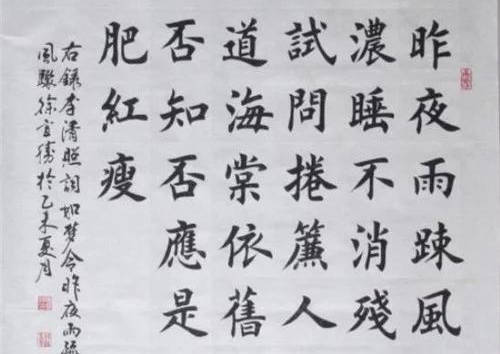 昨夜雨踈風
濃睡不消殘
試問捲簾人
道海棠依舊
否知否應是
肥紅瘦
右錄李清照詞如夢令昨夜雨疏
風驟徐於乙未夏月